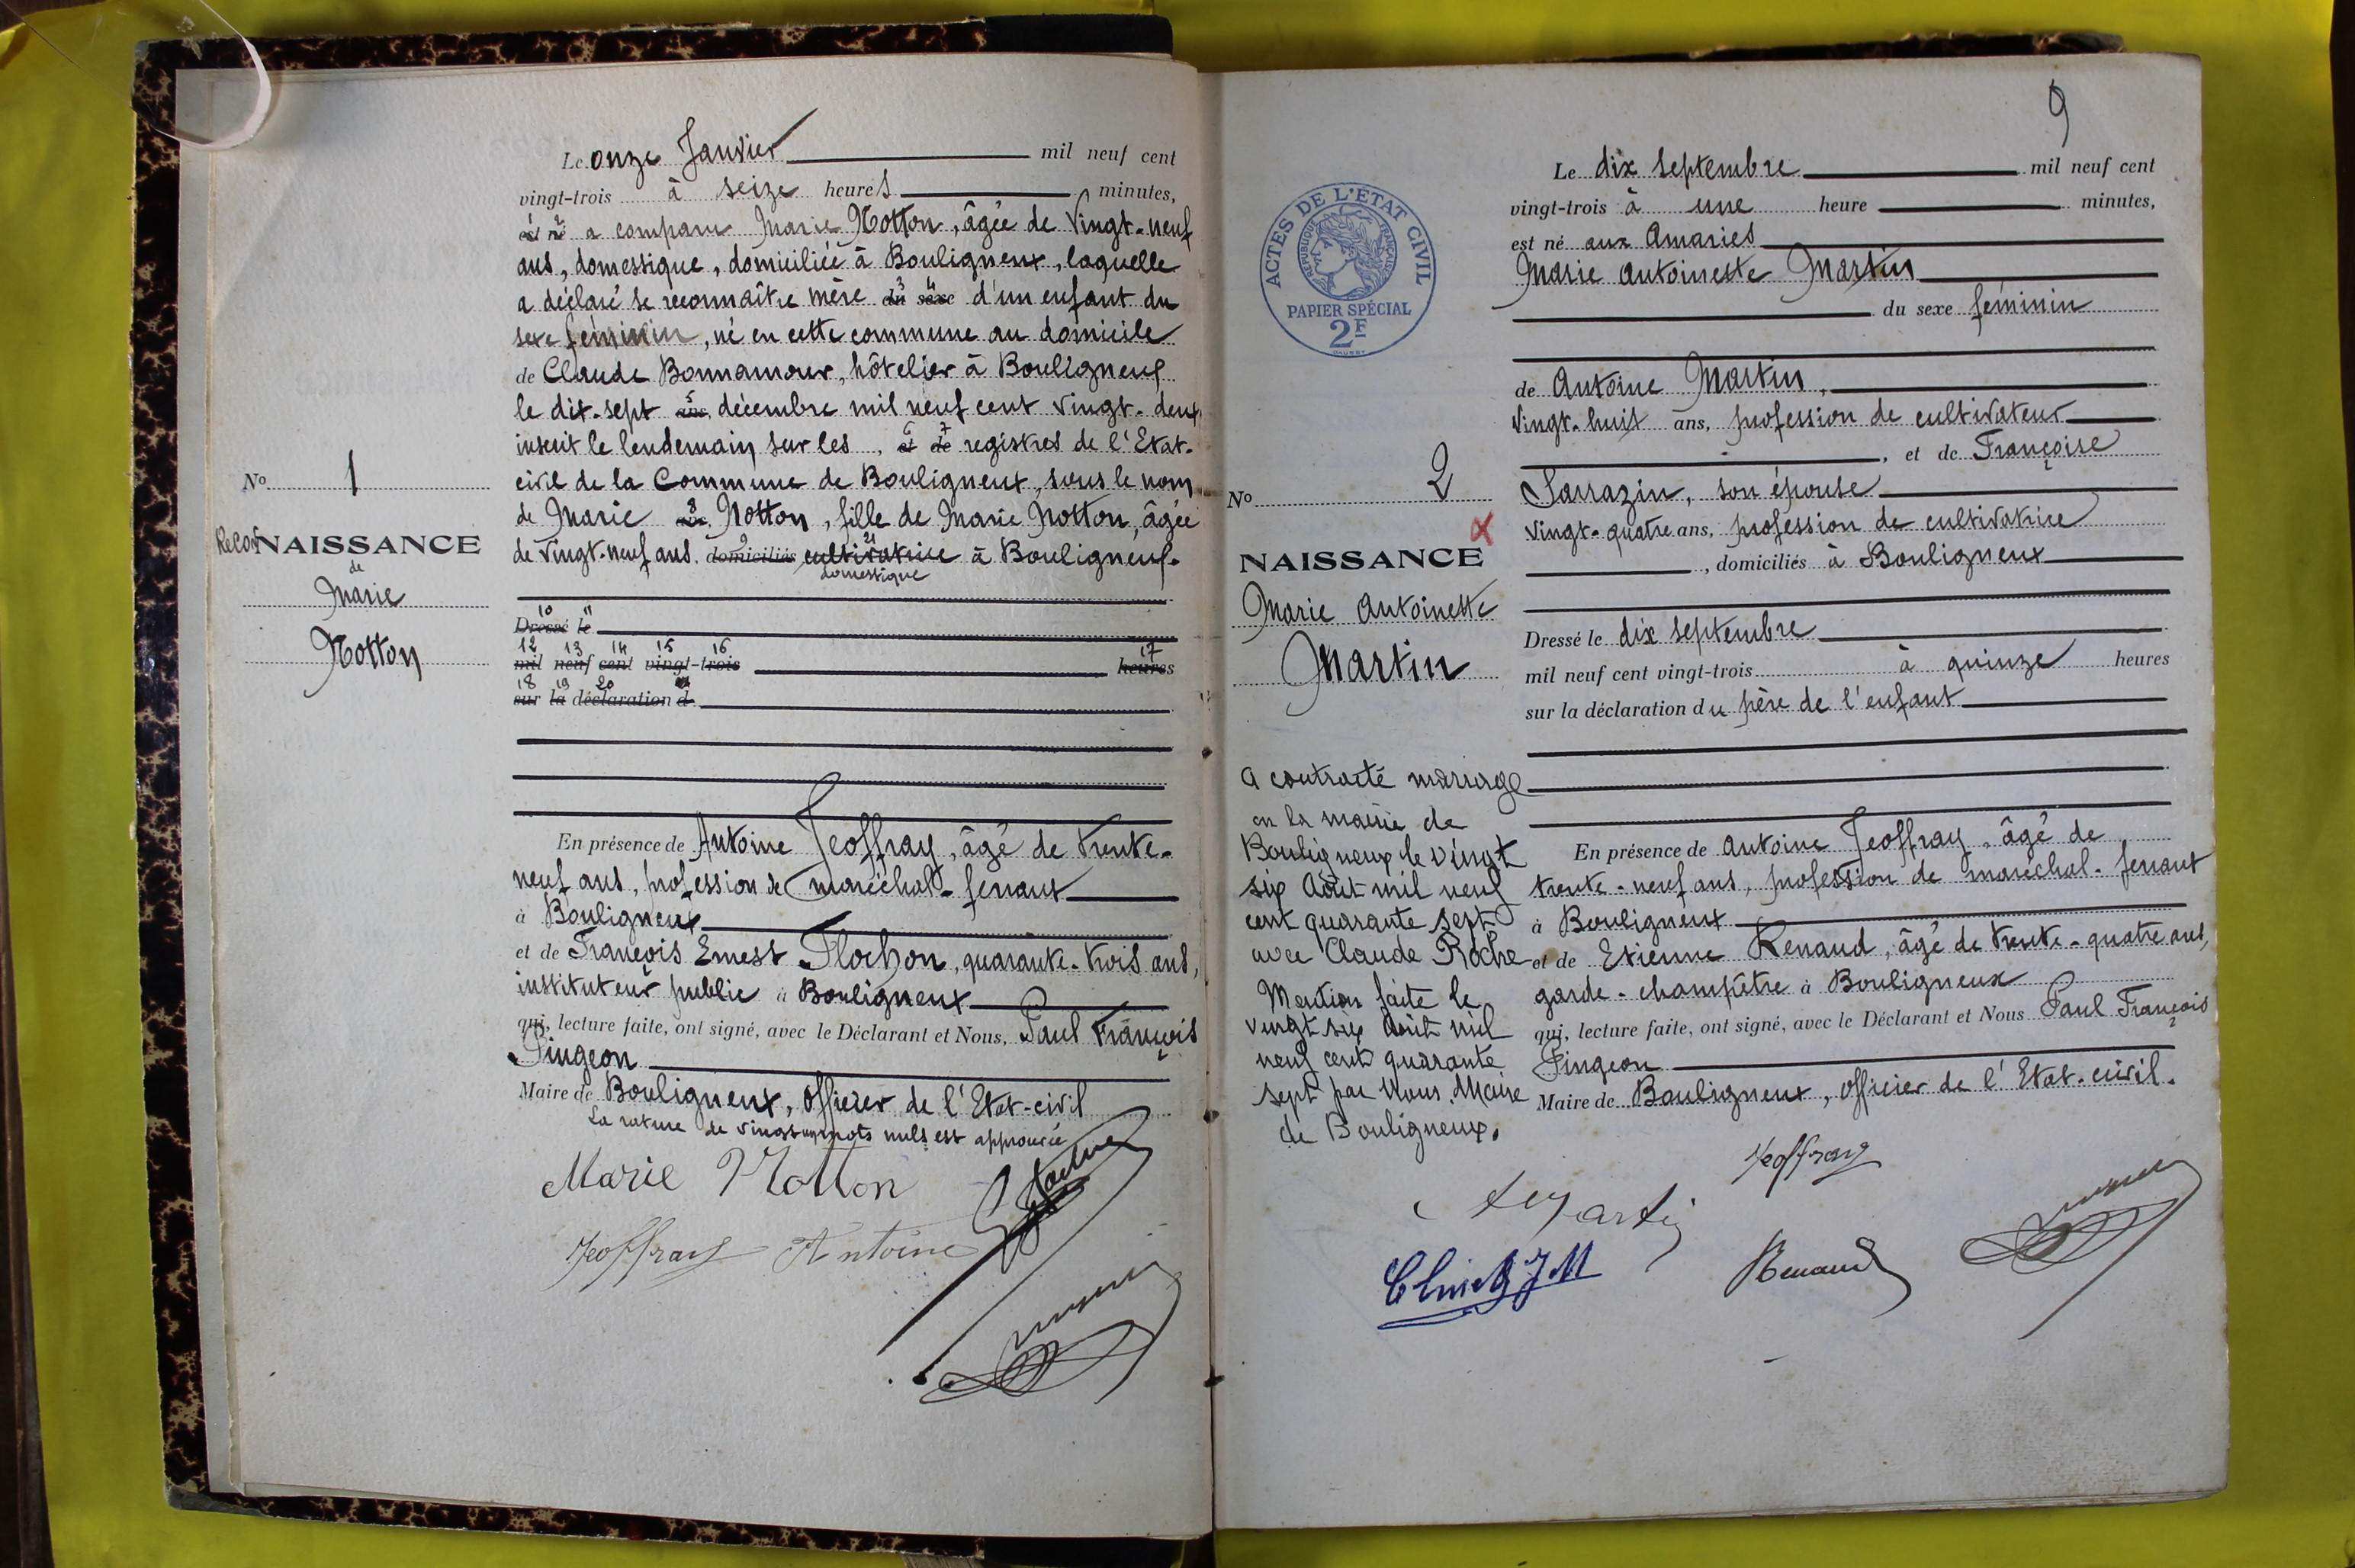 Le onze Janvier mil neuf cent
vingt-trois à seize heures minutes,
est né a comparu Marie Notton, âgée de vingt-neuf
ans, domestique, domiciliée à Bouligneux, laquelle
a déclaré se reconnaître mère du sexe d'un enfant du
sexe féminin, né en cette commune au domicile
de Claude Bonnamour, hôtelier à Bouligneux
le dix-sept ans, décembre mil neuf cent vingt-deux,
inscrit le lendemain sur les , et de registres de l'Etat-
civil de la Commune de Bouligneux, sous le nom
de Marie ans, Notton, fille de Marie Notton, âgée
de vingt-neuf ans. domiciliés cultivatrice à Bouligneux.
domestique
No 1
Recon NAISSANCE
de
Marie
Notton
10 11
Dressé le
12 13 14 15 16 17
mil neuf cent vingt-trois heures
18 19 20
sur la déclaration d
En présence de Antoine Jeoffray, âgé de trente-
neuf ans, profession de maréchal-ferrant
à Bouligneux
et de François Ernest Flochon, quarante-trois ans,
instituteur public à Bouligneux
qui, lecture faite, ont signé, avec le Déclarant et Nous, Paul François
Pingeon
Maire de Bouligneux, Officier de l'Etat-civil
La rature de vingt-un mots nuls est approuvée
Marie Notton
Jeoffray Antoine
9
ACTES DE L'ÉTAT CIVIL
RÉPUBLIQUE FRANÇAISE
PAPIER SPÉCIAL
2F
Le dix septembre mil neuf cent
vingt-trois à une heure minutes,
est né aux Amaries
Marie Antoinette Martin
du sexe féminin
de Antoine Martin,
vingt-huit ans, profession de cultivateur
, et de Françoise
Sarrazin, son épouse
vingt-quatre ans, profession de cultivatrice
, domiciliés à Bouligneux
No 2
NAISSANCE
Marie Antoinette
Martin
Dressé le dix septembre
mil neuf cent vingt-trois à quinze heures
sur la déclaration du père de l'enfant
A contracté mariage
en la mairie de
Bouligneux le vingt
six Août mil neuf
cent quarante sept
avec Claude Roche
Mention faite le
vingt six Août mil
neuf cent quarante
sept par Nous. Maire
de Bouligneux.
En présence de Antoine Jeoffray, âgé de
trente-neuf ans, profession de maréchal-ferrant
à Bouligneux
et de Etienne Renaud, âgé de trente-quatre ans,
garde-champêtre à Bouligneux
qui, lecture faite, ont signé, avec le Déclarant et Nous Paul François
Pingeon
Maire de Bouligneux, Officier de l'Etat-civil.
Jeoffray
Martin
Renaud